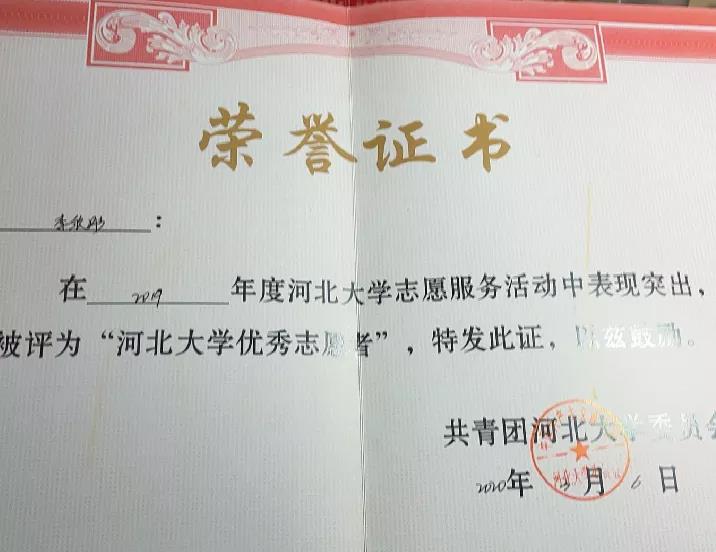 荣誉证书
李欣彤：
在2019年度河北大学志愿服务活动中表现突出，
被评为“河北大学优秀志愿者”，特发此证，以兹鼓励。
共青团河北大学委员会
2020年3月6日